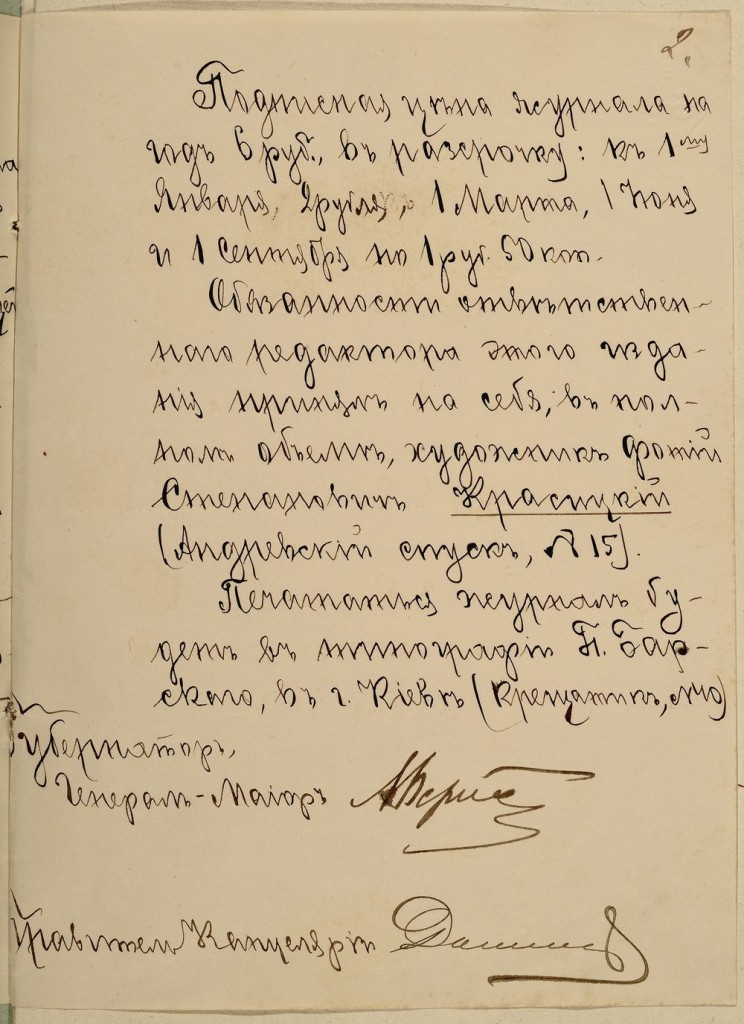 2.
Подписная цѣна журнала на
годъ 6 руб., въ разсрочку: къ 1му
Января, 2 рубля, 1 Марта, 1 Юоня
и 1 Сентября по 1 руб. 50 коп.
Обязанности отвѣтствен-
наго редактора этого изда-
нія принялъ на себя, въ пол-
номъ объемѣ, художникъ Фотій
Степановичъ Красицкій
(Андреевскій спускъ, № 15).
Печататься журналъ бу-
детъ въ типографіи П. Бар-
скаго, въ г. Кіевѣ (Крещатикъ, № 40)
Губернаторъ,
Генералъ-Маіоръ
Правитель Канцеляріи